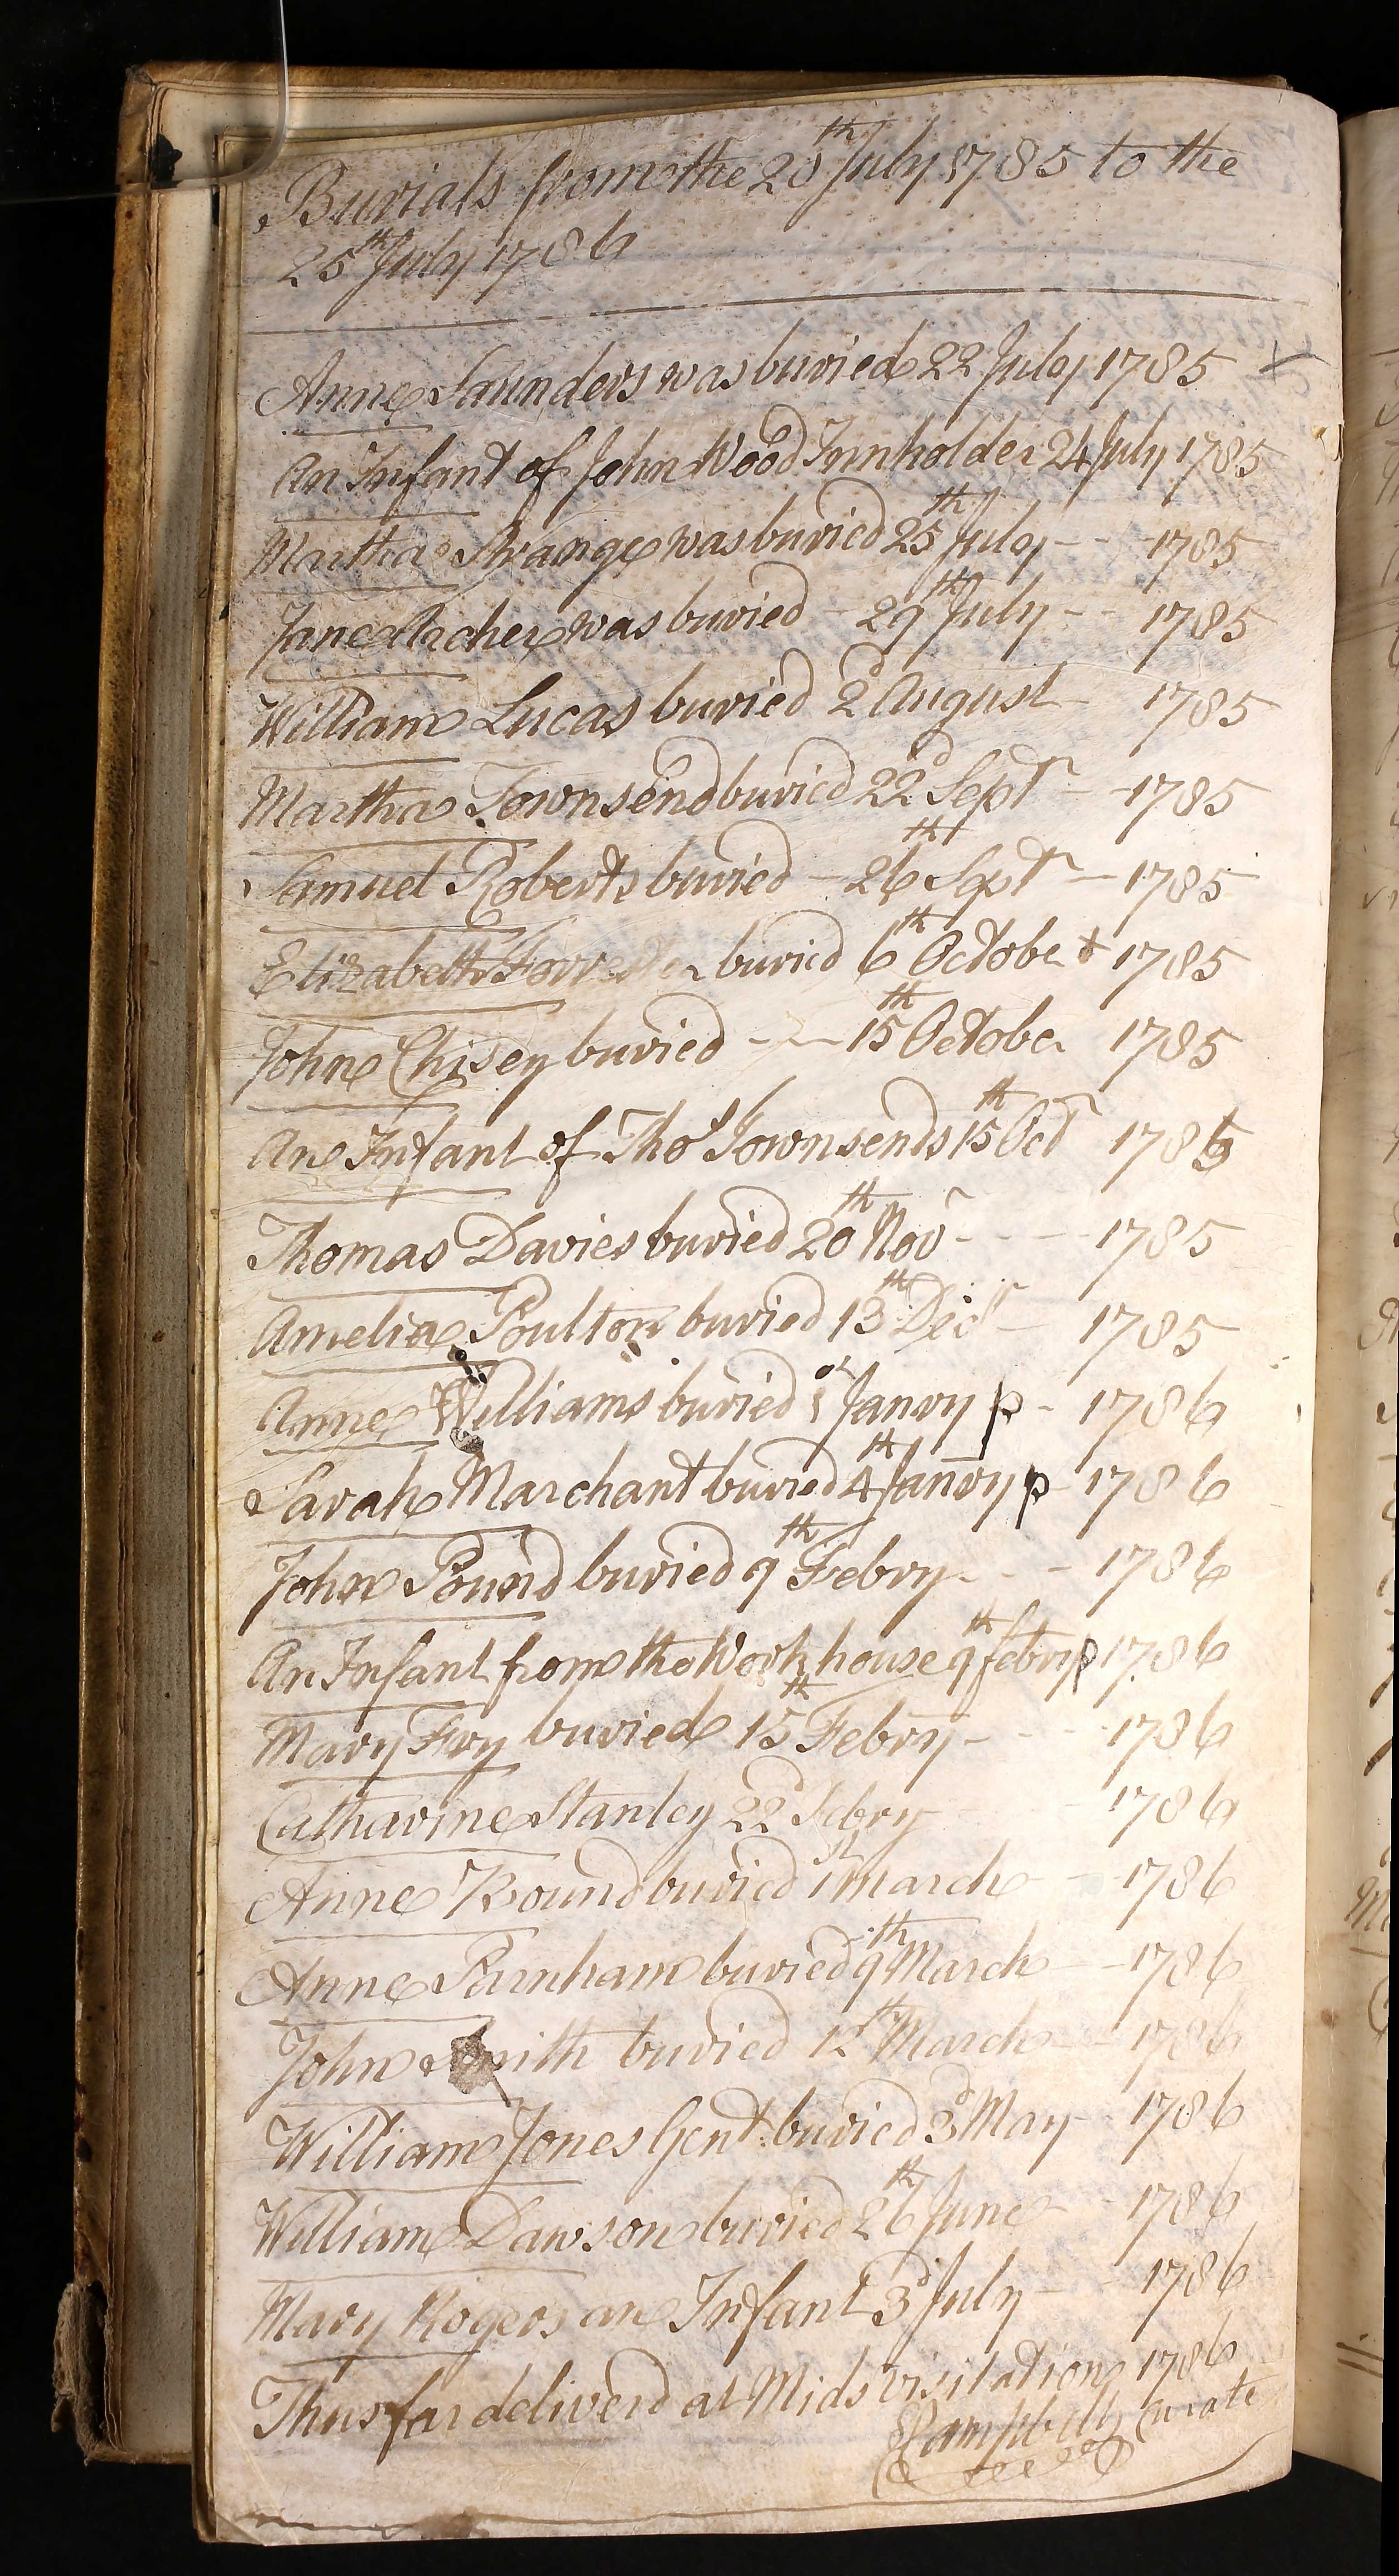 Burials from the 20th July 1785 to the
25th July 1786
Anne Saunders was buried 22 July 1785 X
An Infant of John Wood Innholder 24 July 1785
Martha Strange was buried 25th July - - 1785
Jane Archer was buried - 29th July - - 1785
William Lucas buried 2d August - 1785
Martha Townsend buried 22d Sepr - 1785
Samuel Roberts buried - 26th Sepr - 1785
Elizabeth Forrester buried 6th October + 1785
John Chisey buried - - 15th October 1785
An Infant of Thos Townsends 15th Octr 1785
Thomas Davies buried 20th Novr - - - 1785
Amelia Poulton buried 13th Decr - 1785
Anne Williams buried 1st Janry p - 1786
Sarah Marchant buried 4th Janry p - 1786
John Pound buried 9th Febry - - - 1786
An Infant from the Workhouse 9th febry p 1786
Mary Fry buried 15th Febry - - - 1786
Catharine Stanley 22d Febry 1786
Anne Round buried 1st March - 1786
Anne Parnham buried 9th March - 1786
John Smith buried 12th March - 1786
William Jones Gent: buried 3d May - 1786
William Dawson buried 26th June - 1786
Mary Rogers an Infant 3d July - 1786
Thus far deliverd at Mids Visitation 1786
Campbell Curate